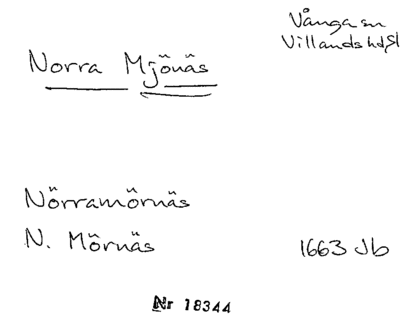 Vånga sn
Villands hd, Sk
Norra Mjönäs
Nörramörnäs
N. Mörnäs 1663 Jb
Nr 18344